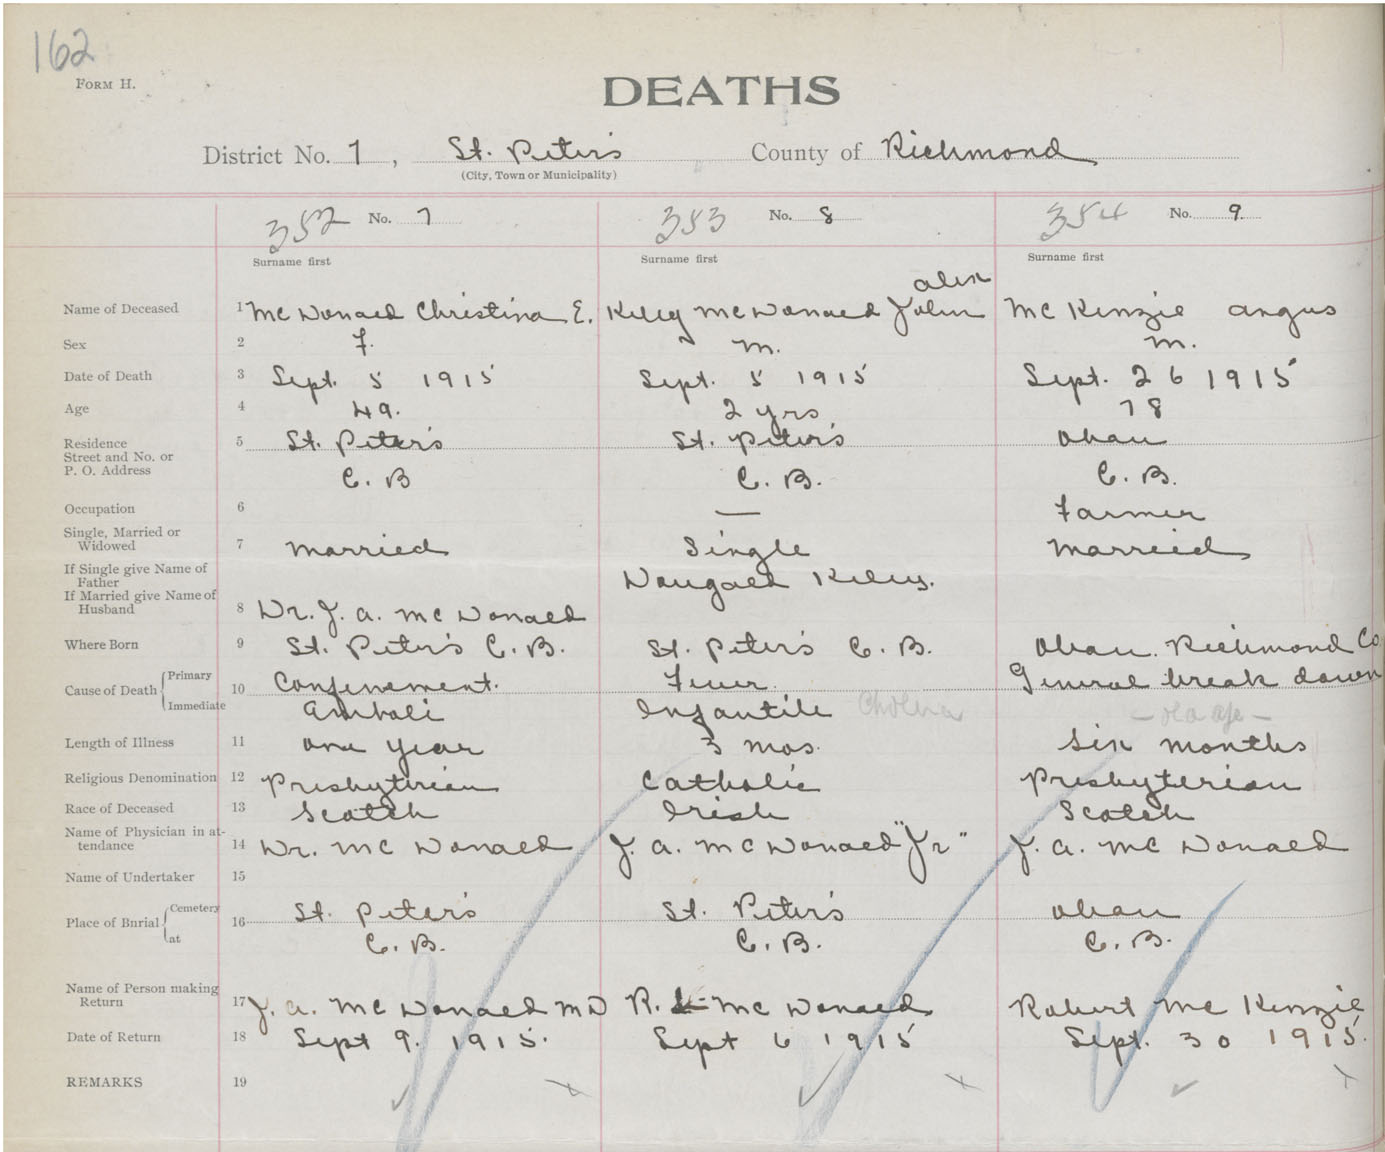 162
FORM H.
DEATHS
District No. 7, St. Peter's County of Richmond
(City, Town or Municipality)
352 No. 7 353 No. 8 354 No. 9
Surname first Surname first Surname first
alex
Name of Deceased 1 McDonald Christina E. Kelly McDonald John McKenzie Angus
Sex 2 F. M. M.
Date of Death 3 Sept. 5 1915 Sept. 5 1915 Sept. 26 1915
Age 4 49. 2 yrs 78
Residence 5 St. Peter's St. Peter's Oban
Street and No. or
P. O. Address C. B C. B. C. B.
Occupation 6 — Farmer
Single, Married or
Widowed 7 Married Single Married
If Single give Name of
Father Dougald Kelly.
If Married give Name of
Husband 8 Dr. J. A. McDonald
Where Born 9 St. Peter's C. B. St. Peter's C. B. Oban. Richmond Co
Cause of Death Primary 10 Confinement. Fever. General break down
Immediate Emboli Infantile Cholera — old age —
Length of Illness 11 one year 3 mos. Six months
Religious Denomination 12 Presbyterian Catholic Presbyterian
Race of Deceased 13 Scotch Irish Scotch
Name of Physician in at-
tendance 14 Dr. McDonald J. A. McDonald "Jr" J. A. McDonald
Name of Undertaker 15
Place of Burial Cemetery 16 St. Peter's St. Peter's Oban
at C. B. C. B. C. B.
Name of Person making
Return 17 J. A. McDonald MD R. McDonald Robert McKenzie
Date of Return 18 Sept 9. 1915. Sept 6 1915 Sept. 30 1915.
REMARKS 19